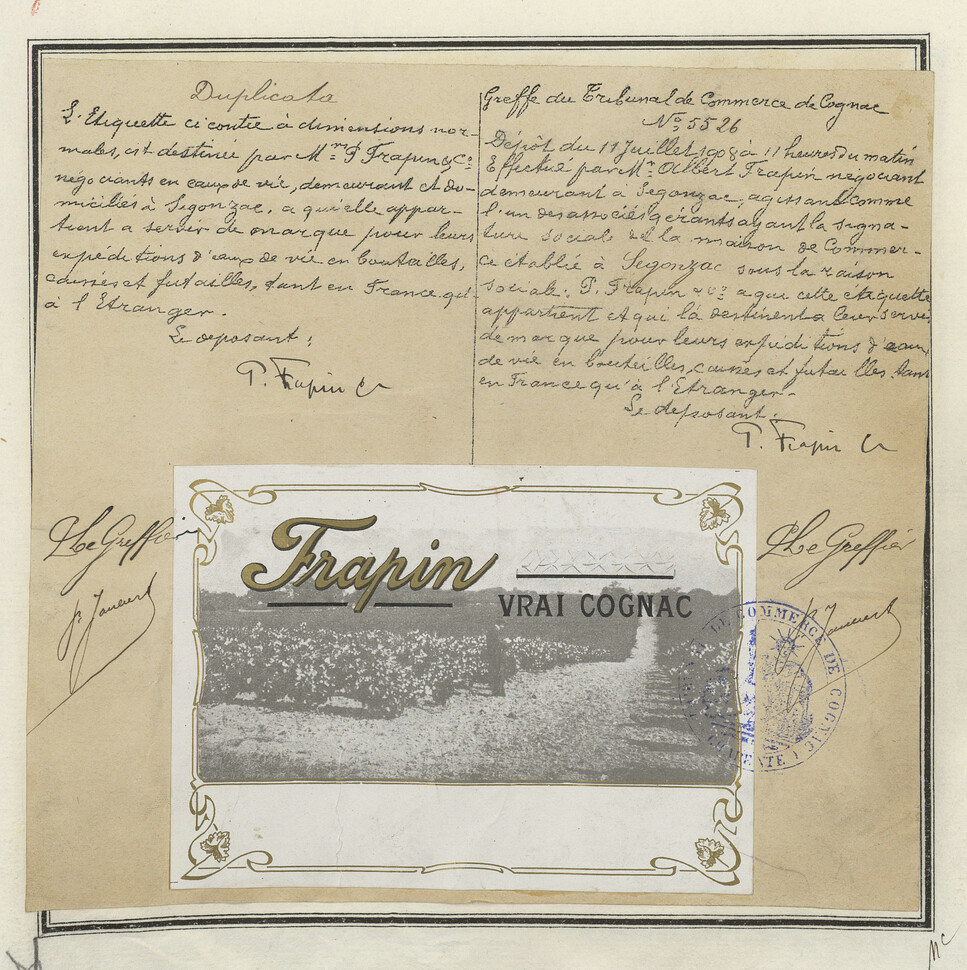 Duplicata
L'Etiquette ci contre à dimensions nor-
males, est destinée par Mrs P. Frapin & Co
négociants en eaux de vie, demeurant et do-
miciliés à Segonzac, a qui elle appar-
tient a servir de marque pour leurs
expéditions d'eaux de vie en bouteilles,
caisses et futailles, tant en France qu'
à l'Etranger.
Le deposant;
P. Frapin Co
Greffe du Tribunal de Commerce de Cognac
No 5526
Dépôt du 11 Juillet 1908 à 11 heures du matin
Effectué par Mr Albert Frapin négociant
demeurant à Segonzac, agissant comme
l'un des associés gérants ayant la signa-
ture sociale de la maison de Commer-
ce établie à Segonzac sous la raison
sociale: P. Frapin & Co a qui cette étiquette
appartient et qui la destinent a leur servir
de marque pour leurs expéditions d'eaux
de vie en bouteilles, caisses et futailles tant
en France qu'à l'Etranger-
Le deposant.
P. Frapin Co
Le Greffier
Le Greffier
Frapin
VRAI COGNAC
COMMERCE DE COGNAC